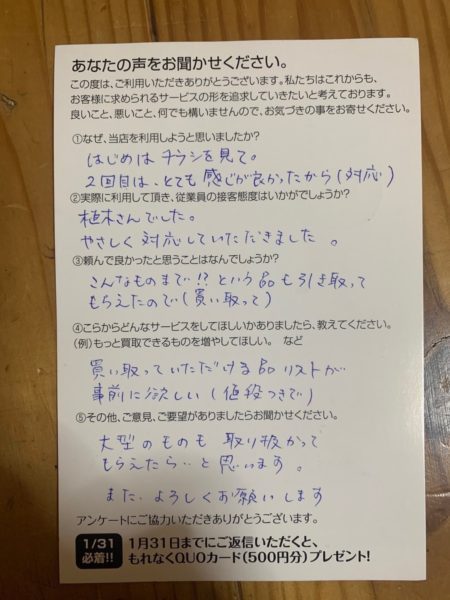 あなたの声をお聞かせください。
この度は、ご利用いただきありがとうございます。私たちはこれからも、
お客様に求められるサービスの形を追求していきたいと考えております。
良いこと、悪いこと、何でも構いませんので、お気づきの事をお寄せください。
①なぜ、当店を利用しようと思いましたか?
はじめは チラシを見て。
2回目は、とても 感じが良かったから(対応)
②実際に利用して頂き、従業員の接客態度はいかがでしょうか?
植木さんでした。
やさしく 対応していただきました。
③頼んで良かったと思うことはなんでしょうか?
こんなものまで!? という品も引き取って
もらえたので(買い取って)
④こらからどんなサービスをしてほしいかありましたら、教えてください。
(例)もっと買取できるものを増やしてほしい。 など
買い取っていただける品リストが
事前に欲しい(値段つきで)
⑤その他、ご意見、ご要望がありましたらお聞かせください。
大型のものも 取り扱かって
もらえたら…と 思います。
また、よろしくお願いします
アンケートにご協力いただきありがとうございます。
1/31
必着!!
1月31日までにご返信いただくと、
もれなくQUOカード(500円分)プレゼント!